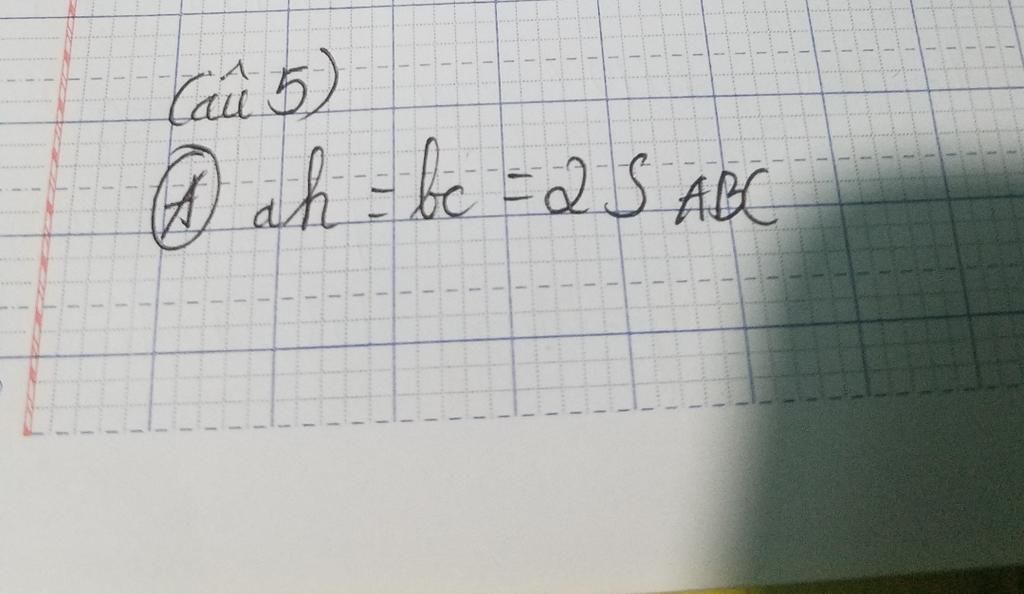 Câu 5)
A ah = bc = 2 S ABC